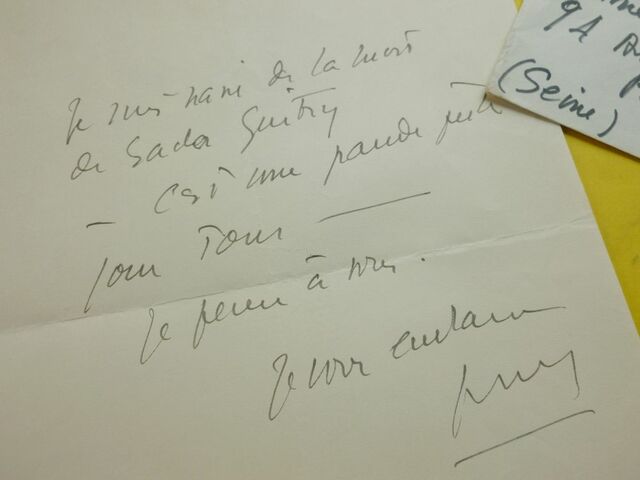 Je suis navré de la mort
de Sacha Guitry
— c'est une grande perte
pour Tous —
Je pense à vous.
Je vous embrasse
9A
(Seine)